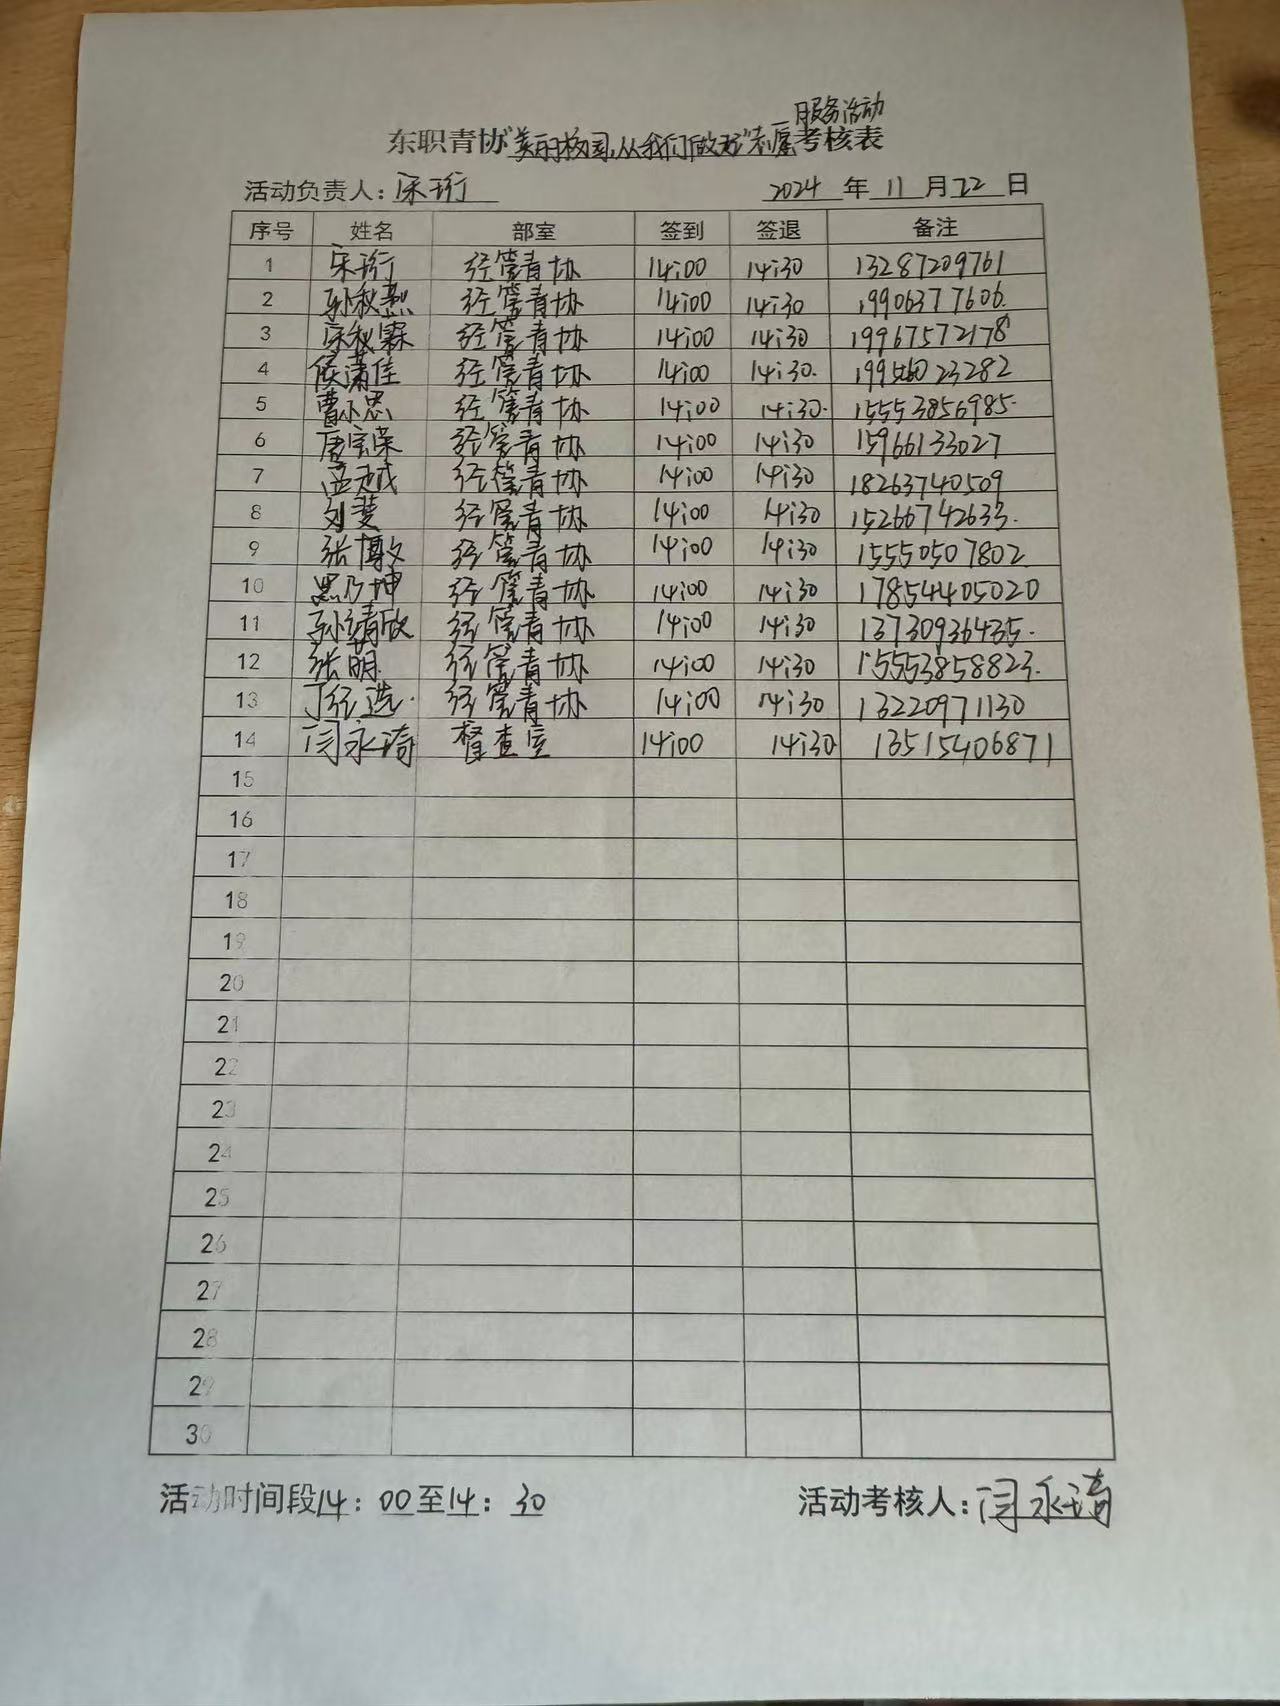 服务活动
东职青协"美丽校园,从我们做起"志愿考核表
活动负责人: 宋珩 2024 年 11 月 22 日
序号 姓名 部室 签到 签退 备注
1 宋珩 经管青协 14:00 14:30 13287209761
2 孙秋 经管青协 14:00 14:30 19906377606.
3 宋秋霖 经管青协 14:00 14:30 19967572178
4 侯潇佳 经管青协 14:00 14:30. 23282
5 曹小忠 经管青协 14:00 14:30. 15553856985.
6 唐宝荣 经管青协 14:00 14:30 15966133027
7 孟越 经管青协 14:00 14:30 18263740509
8 刘斐 经管青协 14:00 14:30 15266742633.
9 张博敏 经管青协 14:00 14:30 15550507802
10 黑乃坤 经管青协 14:00 14:30 17854405020
11 孙靖欣 经管青协 14:00 14:30 13730936435.
12 张萌. 经管青协 14:00 14:30 15553858823.
13 丁经选. 经管青协 14:00 14:30 13220971130
14 闫永琦 督查室 14:00 14:30 13515406871
15
16
17
18
19
20
21
22
23
24
25
26
27
28
29
30
活动时间段14: 00至14: 30 活动考核人: 闫永琦